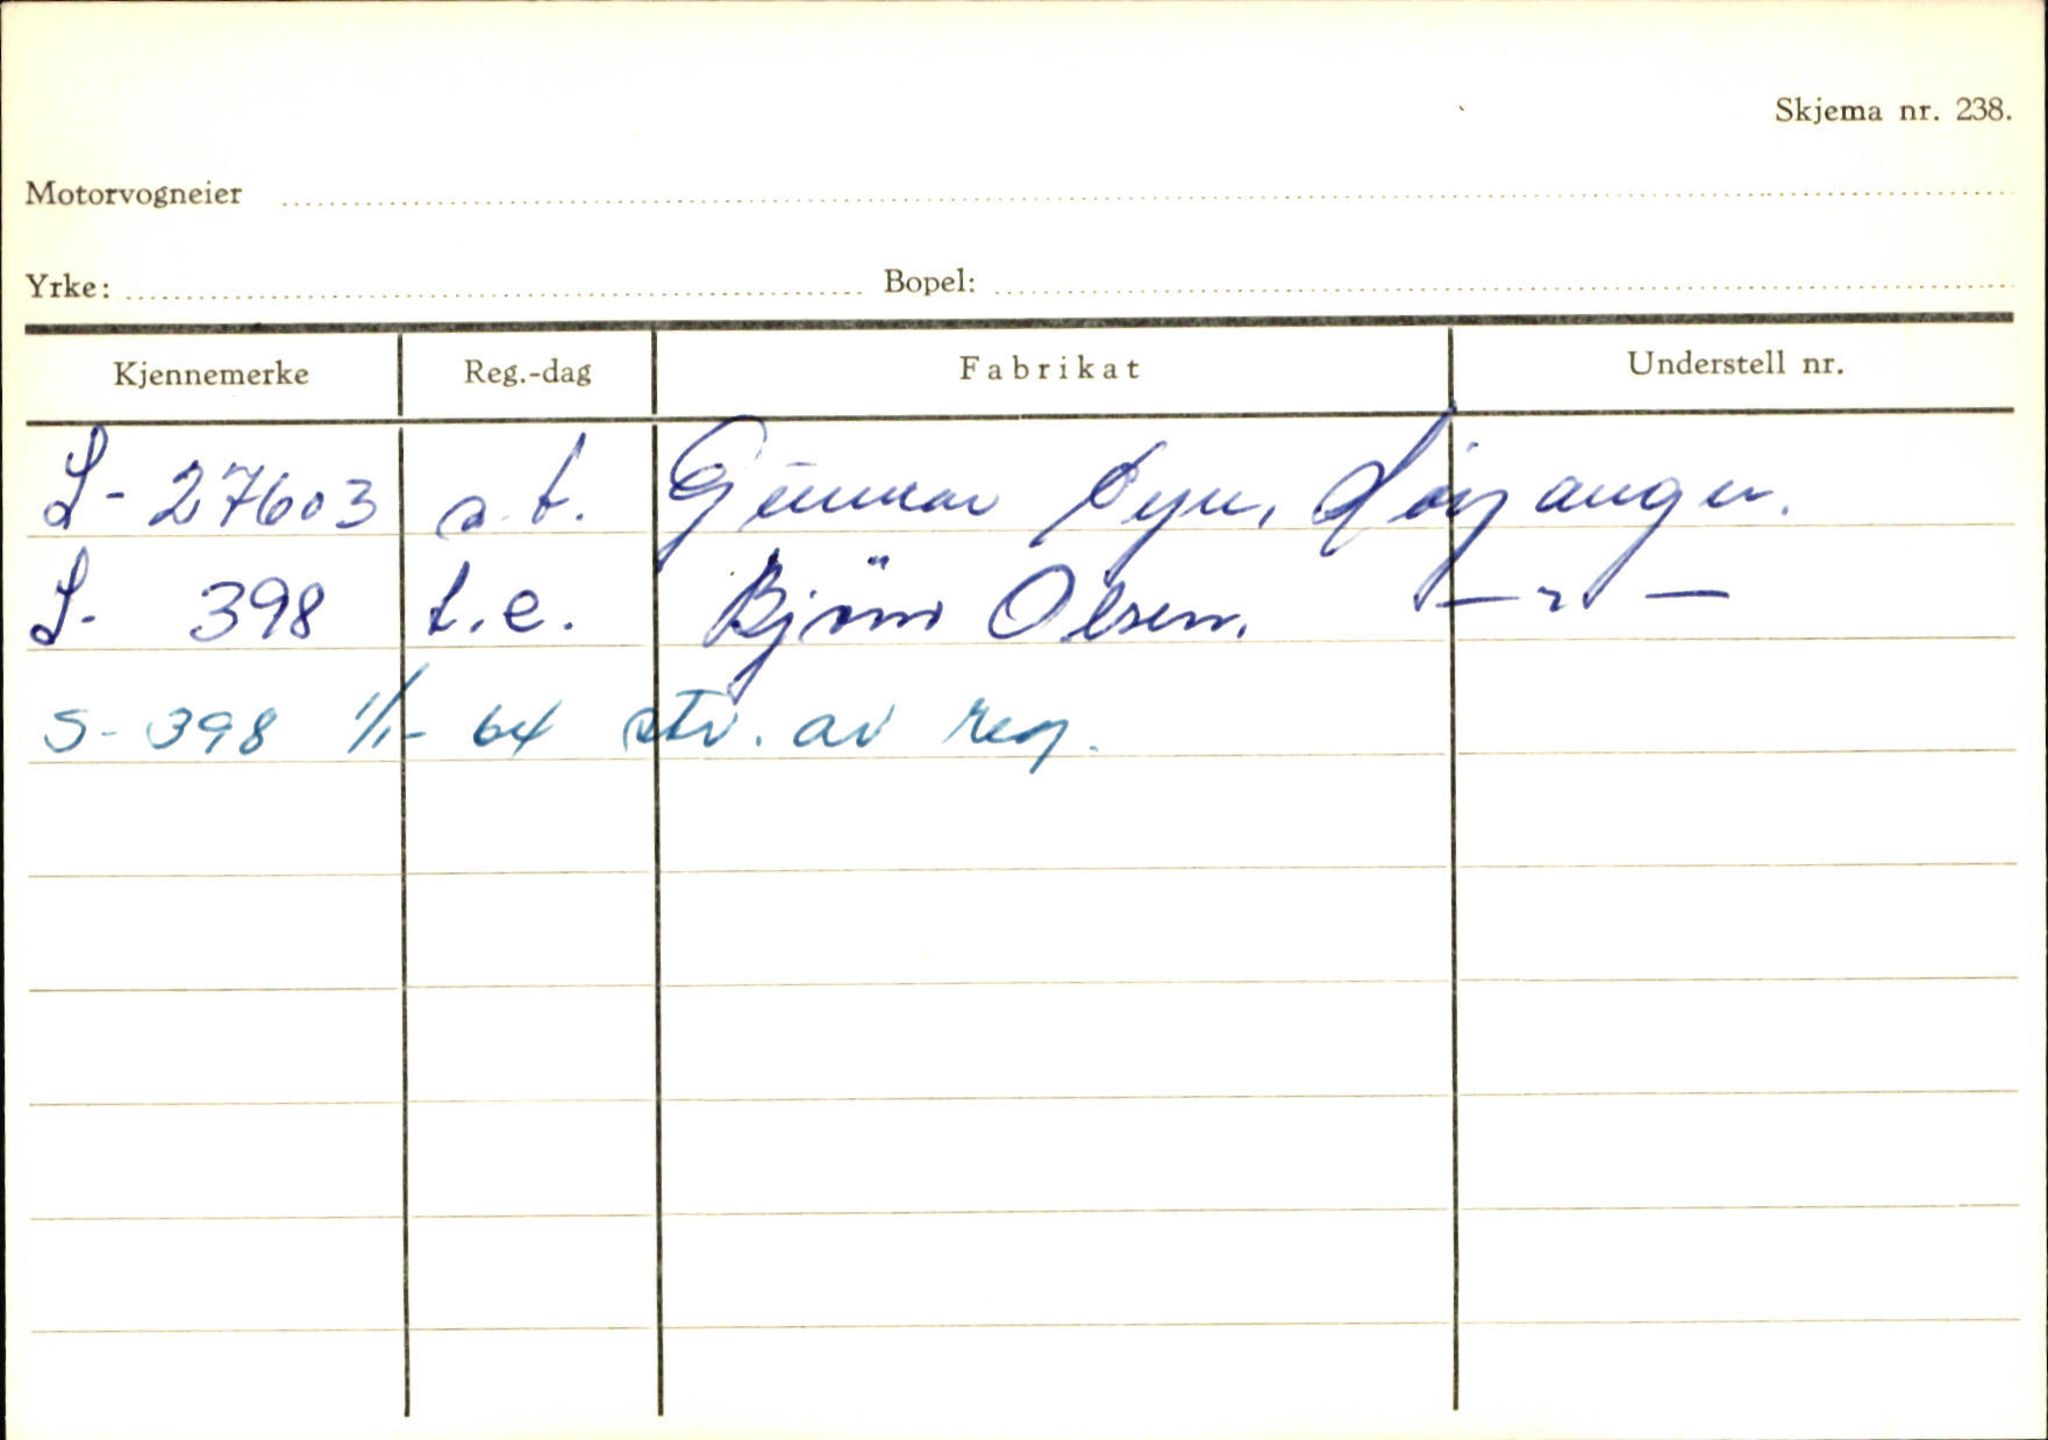 Skjema nr. 238.
Motorvogneier
Yrke: Bopel:
Kjennemerke Reg.-dag Fabrikat Understell nr.
S-27603 a.t. Gunnar Øyn, Høyanger.
S- 398 t.e. Bjørn Olsen. — " —
S-398 1/1-64 str. av reg.